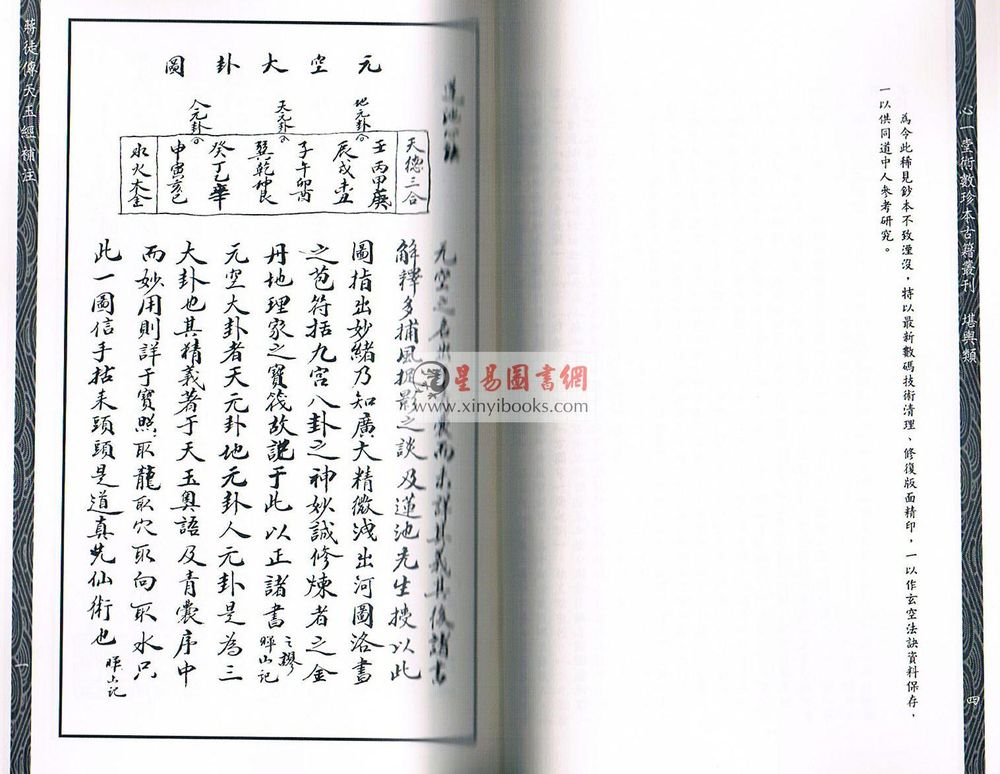 心一堂術數珍本古籍叢刊 堪輿類
四
為令此稀見鈔本不致湮沒,特以最新數碼技術清理、修復版面精印,一以作玄空法訣資料保存,
一以供同道中人參考研究。
元空大卦圖
地元卦
天元卦
人元卦
天德三合
壬丙甲庚
辰戌未丑
子午卯酉
巽乾坤艮
癸丁乙辛
申寅亥巳
水火木金
元空之名 而未詳其義其後諸書
解釋多捕風捉影之談及蓮池先生授以此
圖指出妙緒乃知廣大精微淺出河圖洛書
之苞符括九宮八卦之神妙誠修煉者之金
丹地理家之寶筏故誌于此以正諸書之謬
暉山記
元空大卦者天元卦地元卦人元卦是為三
大卦也其精義著于天玉奧語及青囊序中
而妙用則詳于寶照取龍取穴取向取水只
此一圖信手拈來頭頭是道真先仙術也
暉山記
蔣徒傳天玉經補註
一
星易圖書網
www.xinyibooks.com